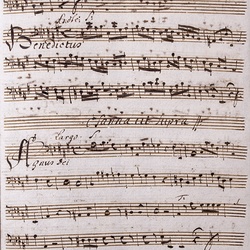 Benedictus
Osanna ut supra
Largo
Agnus dei